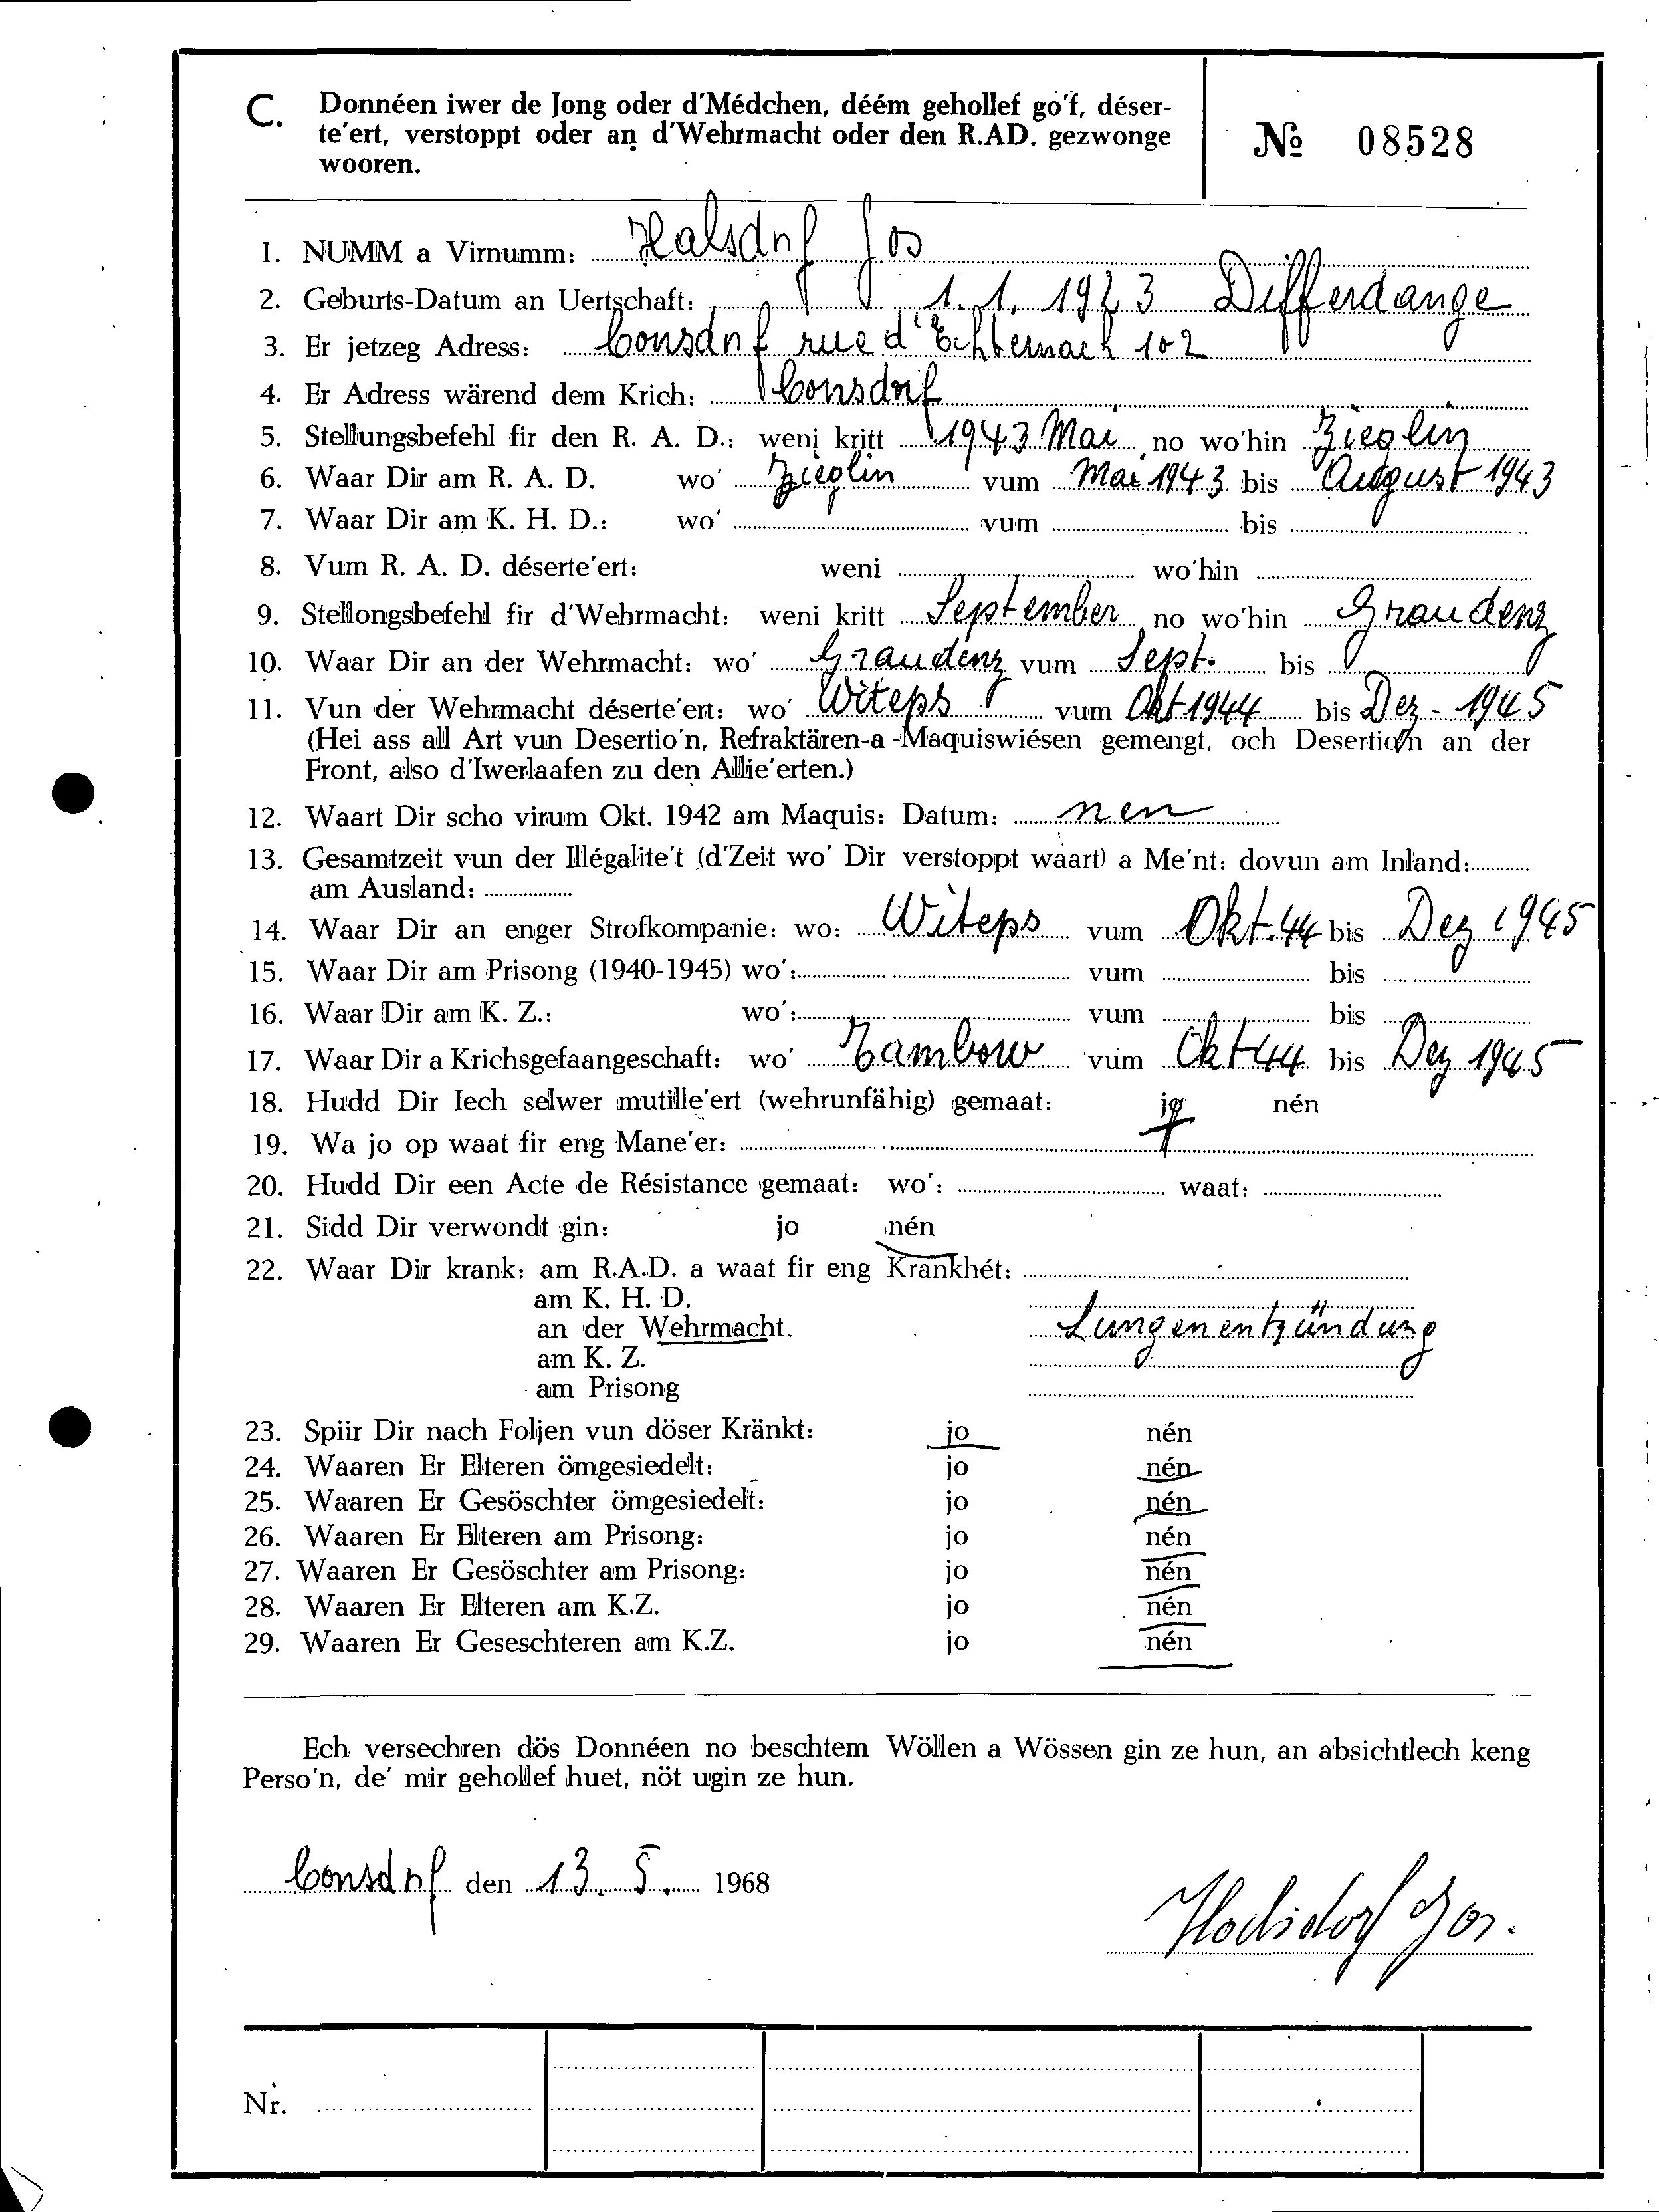 C. Donnéen iwer de Jong oder d'Médchen, déém gehollef go'f, déser-
te'ert, verstoppt oder an d'Wehrmacht oder den R.AD. gezwonge
wooren.
№ 08528
1. NUMM a Virnumm: Halsdorf Jos
2. Geburts-Datum an Uertschaft: 1.1.1923 Differdange
3. Er jetzeg Adress: Consdorf rue d'Echternach 102
4. Er Adress wärend dem Krich: Consdorf
5. Stellungsbefehl fir den R. A. D.: weni kritt 1943 Mai no wo'hin Zieglin
6. Waar Dir am R. A. D. wo' Zieglin vum Mai 1943 bis August 1943
7. Waar Dir am K. H. D.: wo' vum bis
8. Vum R. A. D. déserte'ert: weni wo'hin
9. Stellongsbefehl fir d'Wehrmacht: weni kritt September no wo'hin Graudenz
10. Waar Dir an der Wehrmacht: wo' Graudenz vum Sept. bis
11. Vun der Wehrmacht déserte'ert: wo' Witeps vum Okt 1944 bis Dez - 1945
(Hei ass all Art vun Desertio'n, Refraktären-a-Maquiswiésen gemengt, och Desertio'n an der
Front, also d'Iwerlaafen zu den Allie'erten.)
12. Waart Dir scho virum Okt. 1942 am Maquis: Datum: nen
13. Gesamtzeit vun der Illégalite't (d'Zeit wo' Dir verstoppt waart) a Me'nt: dovun am Inland:
am Ausland:
14. Waar Dir an enger Strofkompanie: wo: Witeps vum Okt. 44 bis Dez 1945
15. Waar Dir am Prisong (1940-1945) wo': vum bis
16. Waar Dir am K. Z.: wo': vum bis
17. Waar Dir a Krichsgefaangeschaft: wo' Tambow vum Okt 44 bis Dez 1945
18. Hudd Dir Iech selwer mutille'ert (wehrunfähig) gemaat: jo nén
19. Wa jo op waat fir eng Mane'er:
20. Hudd Dir een Acte de Résistance gemaat: wo': waat:
21. Sidd Dir verwondt gin: jo nén
22. Waar Dir krank: am R.A.D. a waat fir eng Krankhét:
am K. H. D.
an der Wehrmacht. Lungenentzündung
am K. Z.
am Prisong
23. Spiir Dir nach Foljen vun döser Kränkt: jo nén
24. Waaren Er Elteren ömgesiedelt: jo nén
25. Waaren Er Gesöschter ömgesiedelt: jo nén
26. Waaren Er Elteren am Prisong: jo nén
27. Waaren Er Gesöschter am Prisong: jo nén
28. Waaren Er Elteren am K.Z. jo nén
29. Waaren Er Geseschteren am K.Z. jo nén
Ech versechren dös Donnéen no beschtem Wöllen a Wössen gin ze hun, an absichtlech keng
Perso'n, de' mir gehollef huet, nöt ugin ze hun.
Consdorf den 13. 5. 1968
Halsdorf Jos.
Nr.